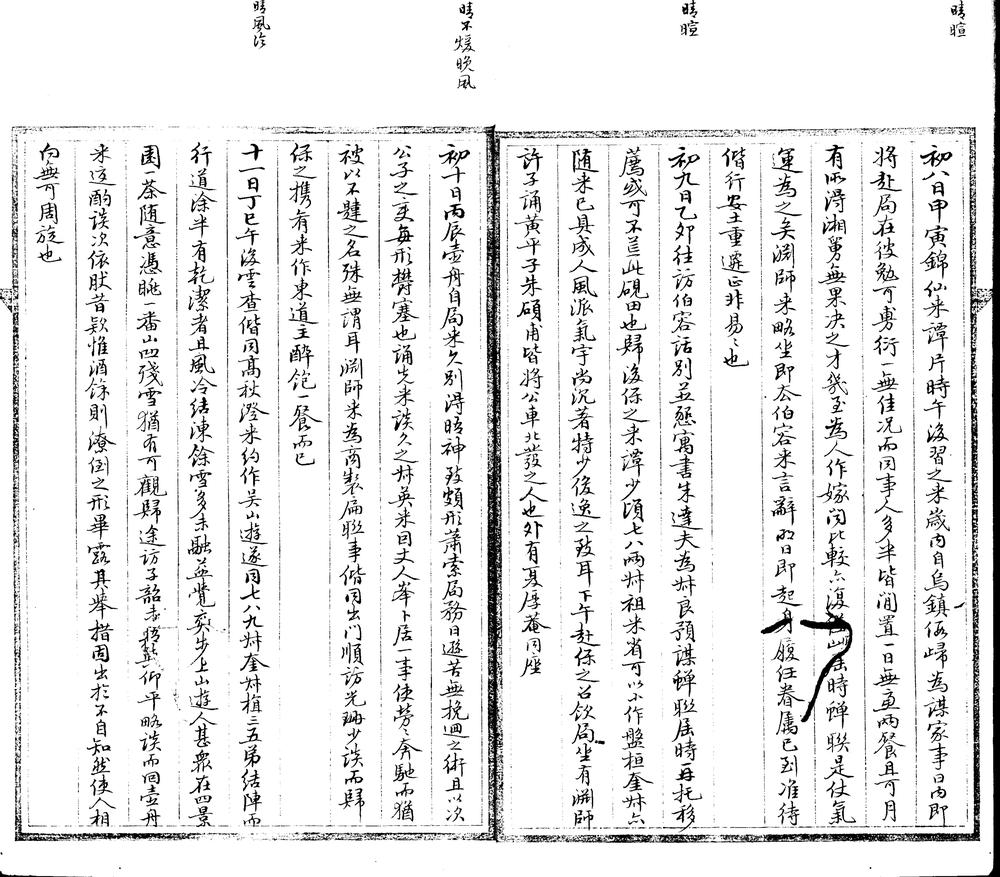 晴暄
初八日甲寅錦仙來譚片時午後習之來歲內自烏鎮徦歸為謀家事日內即
將赴局在彼勉可旉衍一無佳况而同事人多半皆閒置一日無重兩餐且可月
有所淂湘舅無果决之才幾至為人作嫁閱比較六復 屆時蟬聯是仗氣
運為之矣淵師來略坐即去伯容來言辭明日即起身履任眷屬已到准待
偕行安土重遷正非易〻也
晴暄
初九日乙卯往訪伯容話別並懇寓書朱達夫為叔良預謀蟬聯屆時再托移
薦或可不荒此硯田也歸後保之來譚少頃七八兩叔祖來省可以小作盤桓奎叔六
随來已具成人風派氣宇尚沉著特少俊逸之致耳下午赴保之召飲局坐有淵師
許子誦黄平子朱碩甫皆將公車北發之人也外有夏厚菴同座
晴不煖晚風
初十日丙辰壺舟自局來久別淂晤神致頗形蕭索局務日遜苦無挽迴之術且以次
公子之变每形欝塞也誦先來談久之叔英來回丈人峯卜居一事使勞〻奔馳而猶
被以不肄之名殊無謂耳淵師來為商製扁聯事偕同出門順訪光珊少談而歸
保之携肴來作東道主醉飽一餐而已
晴風冷
十一日丁巳午後雲查偕同髙杖澄來約作吴山遊遂同七八九叔奎叔植三五弟結陣而
行道途半有乾潔者且風冷結凍餘雪多未融益覺爽步上山遊人甚衆在四景
園一茶随意憑眺一番山凹殘雪猶有可觀歸途訪子韶 仰平略談而回壺舟
來這酌談次依肰昔欵惟酒餘則潦倒之形畢露其舉措固出於不自知然使人相
向無可周旋也